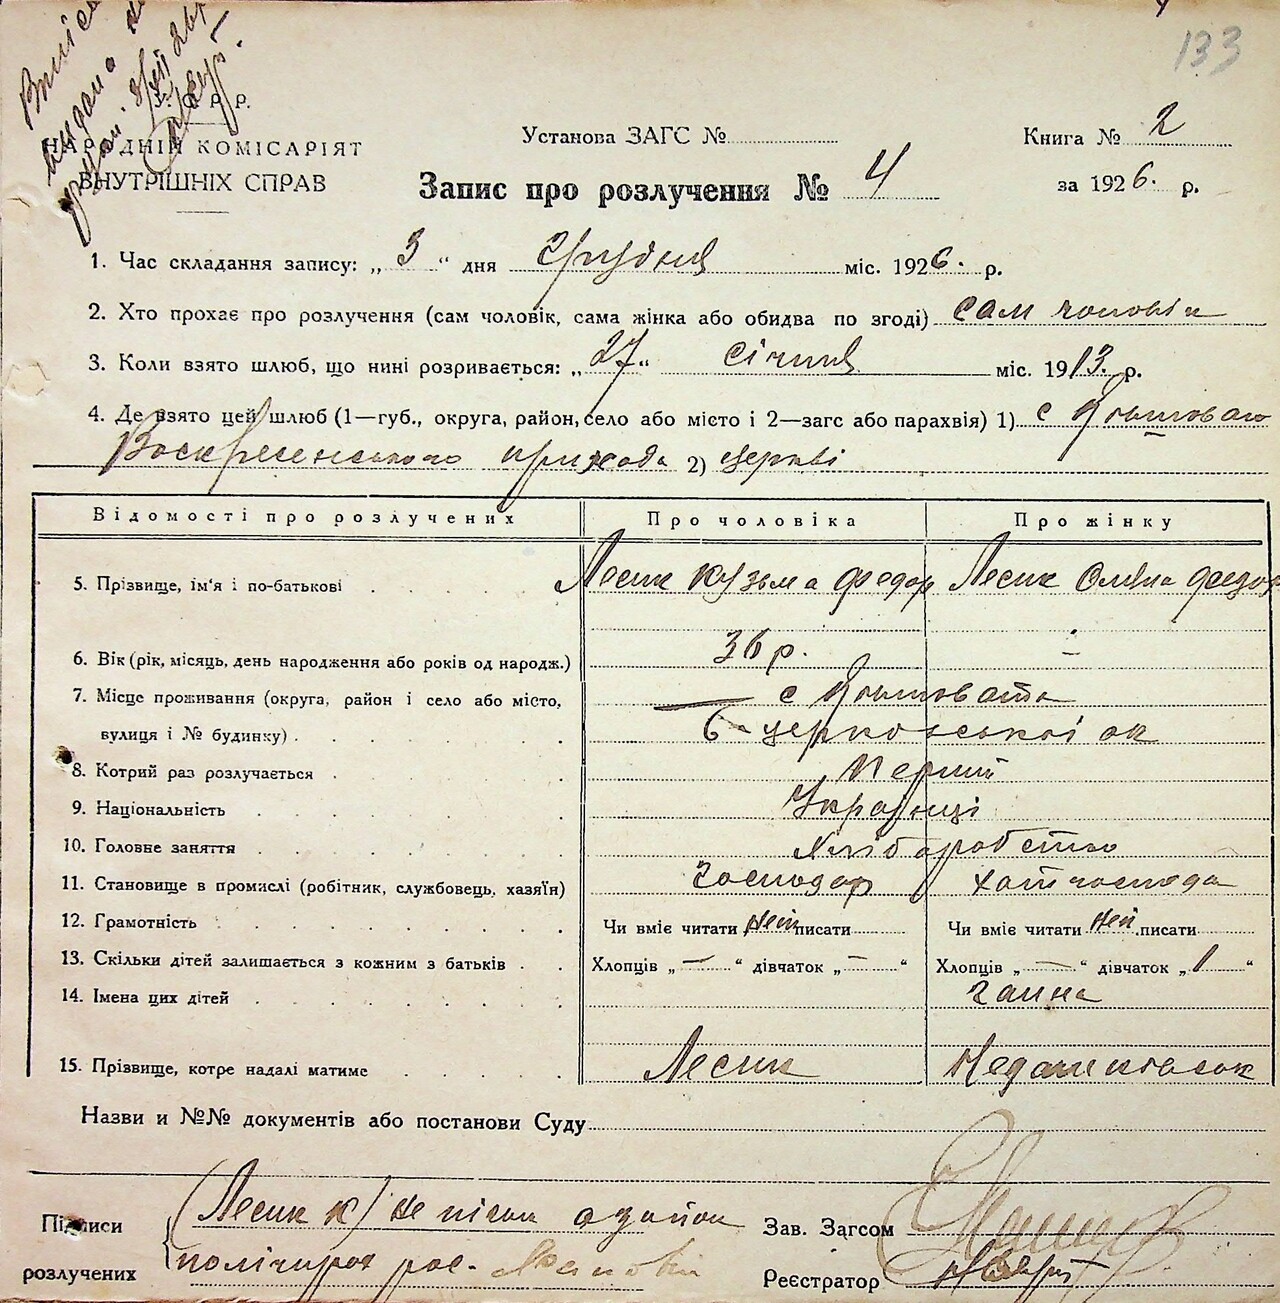 133
У. С. Р. Р.
НАРОДНІЙ КОМІСАРІЯТ
ВНУТРІШНІХ СПРАВ
Установа ЗАГС №
Книга № 2
Запис про розлучення № 4
за 1926. р.
1. Час складання запису: „3“ дня Грудня міс. 1926. р.
2. Хто прохає про розлучення (сам чоловік, сама жінка або обидва по згоді) сам чоловік
3. Коли взято шлюб, що нині розривається: „27“ січня міс. 1913. р.
4. Де взято цей шлюб (1—губ., округа, район, село або місто і 2—загс або парахвія) 1) с
Воскресенського прихода 2) церкві
Відомості про розлучених Про чоловіка Про жінку
5. Прізвище, ім'я і по-батькові Лесик Кузьма Федор Лесик Олена Федор
6. Вік (рік, місяць, день народження або років од народж.) 36 р. -
7. Місце проживання (округа, район і село або місто, с
вулиця і № будинку) Б-церковської ок
8. Котрий раз розлучається Перший
9. Національність Українці
10. Головне заняття Хліборобство
11. Становище в промислі (робітник, службовець, хазяїн) господар
12. Грамотність Чи вміє читати Неп писати Чи вміє читати Неп писати
13. Скільки дітей залишається з кожним з батьків Хлопців „—“ дівчаток „—“ Хлопців „—“ дівчаток „1“
14. Імена цих дітей Ганна
15. Прізвище, котре надалі матиме Лесик
Назви и №№ документів або постанови Суду
Підписи (Лесик К)
розлучених
Зав. Загсом
Реєстратор